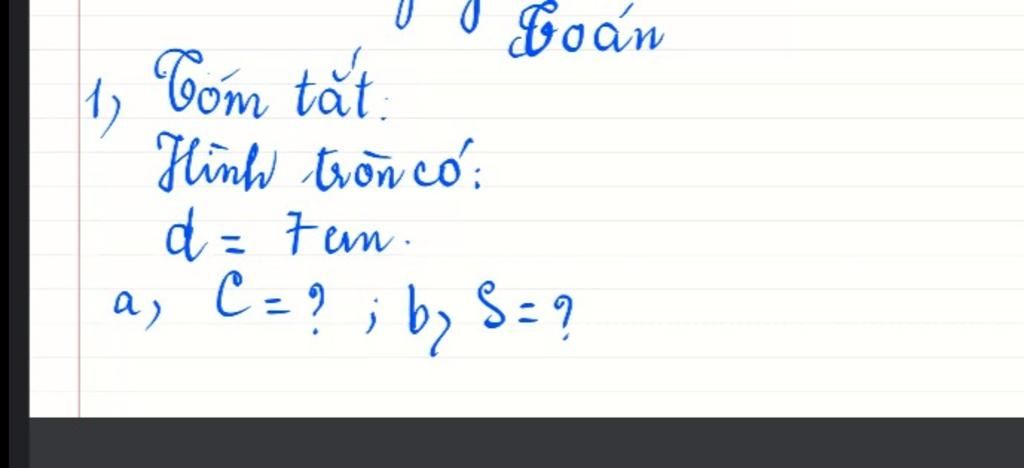 Toán
1, Tóm tắt:
Hình tròn có:
d = 7 cm.
a, C = ? ; b, S = ?